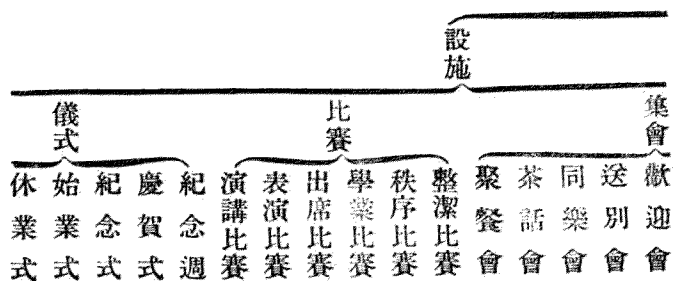 設施
集會
歡迎會
送別會
同樂會
茶話會
聚餐會
比賽
整潔比賽
秩序比賽
學業比賽
出席比賽
表演比賽
演講比賽
儀式
紀念週
慶賀式
紀念式
始業式
休業式